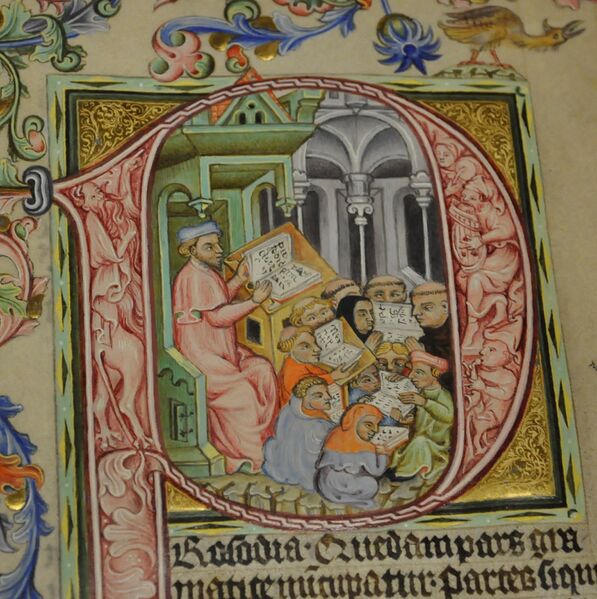 PRosodia · Quedam pars gra
matice nūcupatur · partes siqui